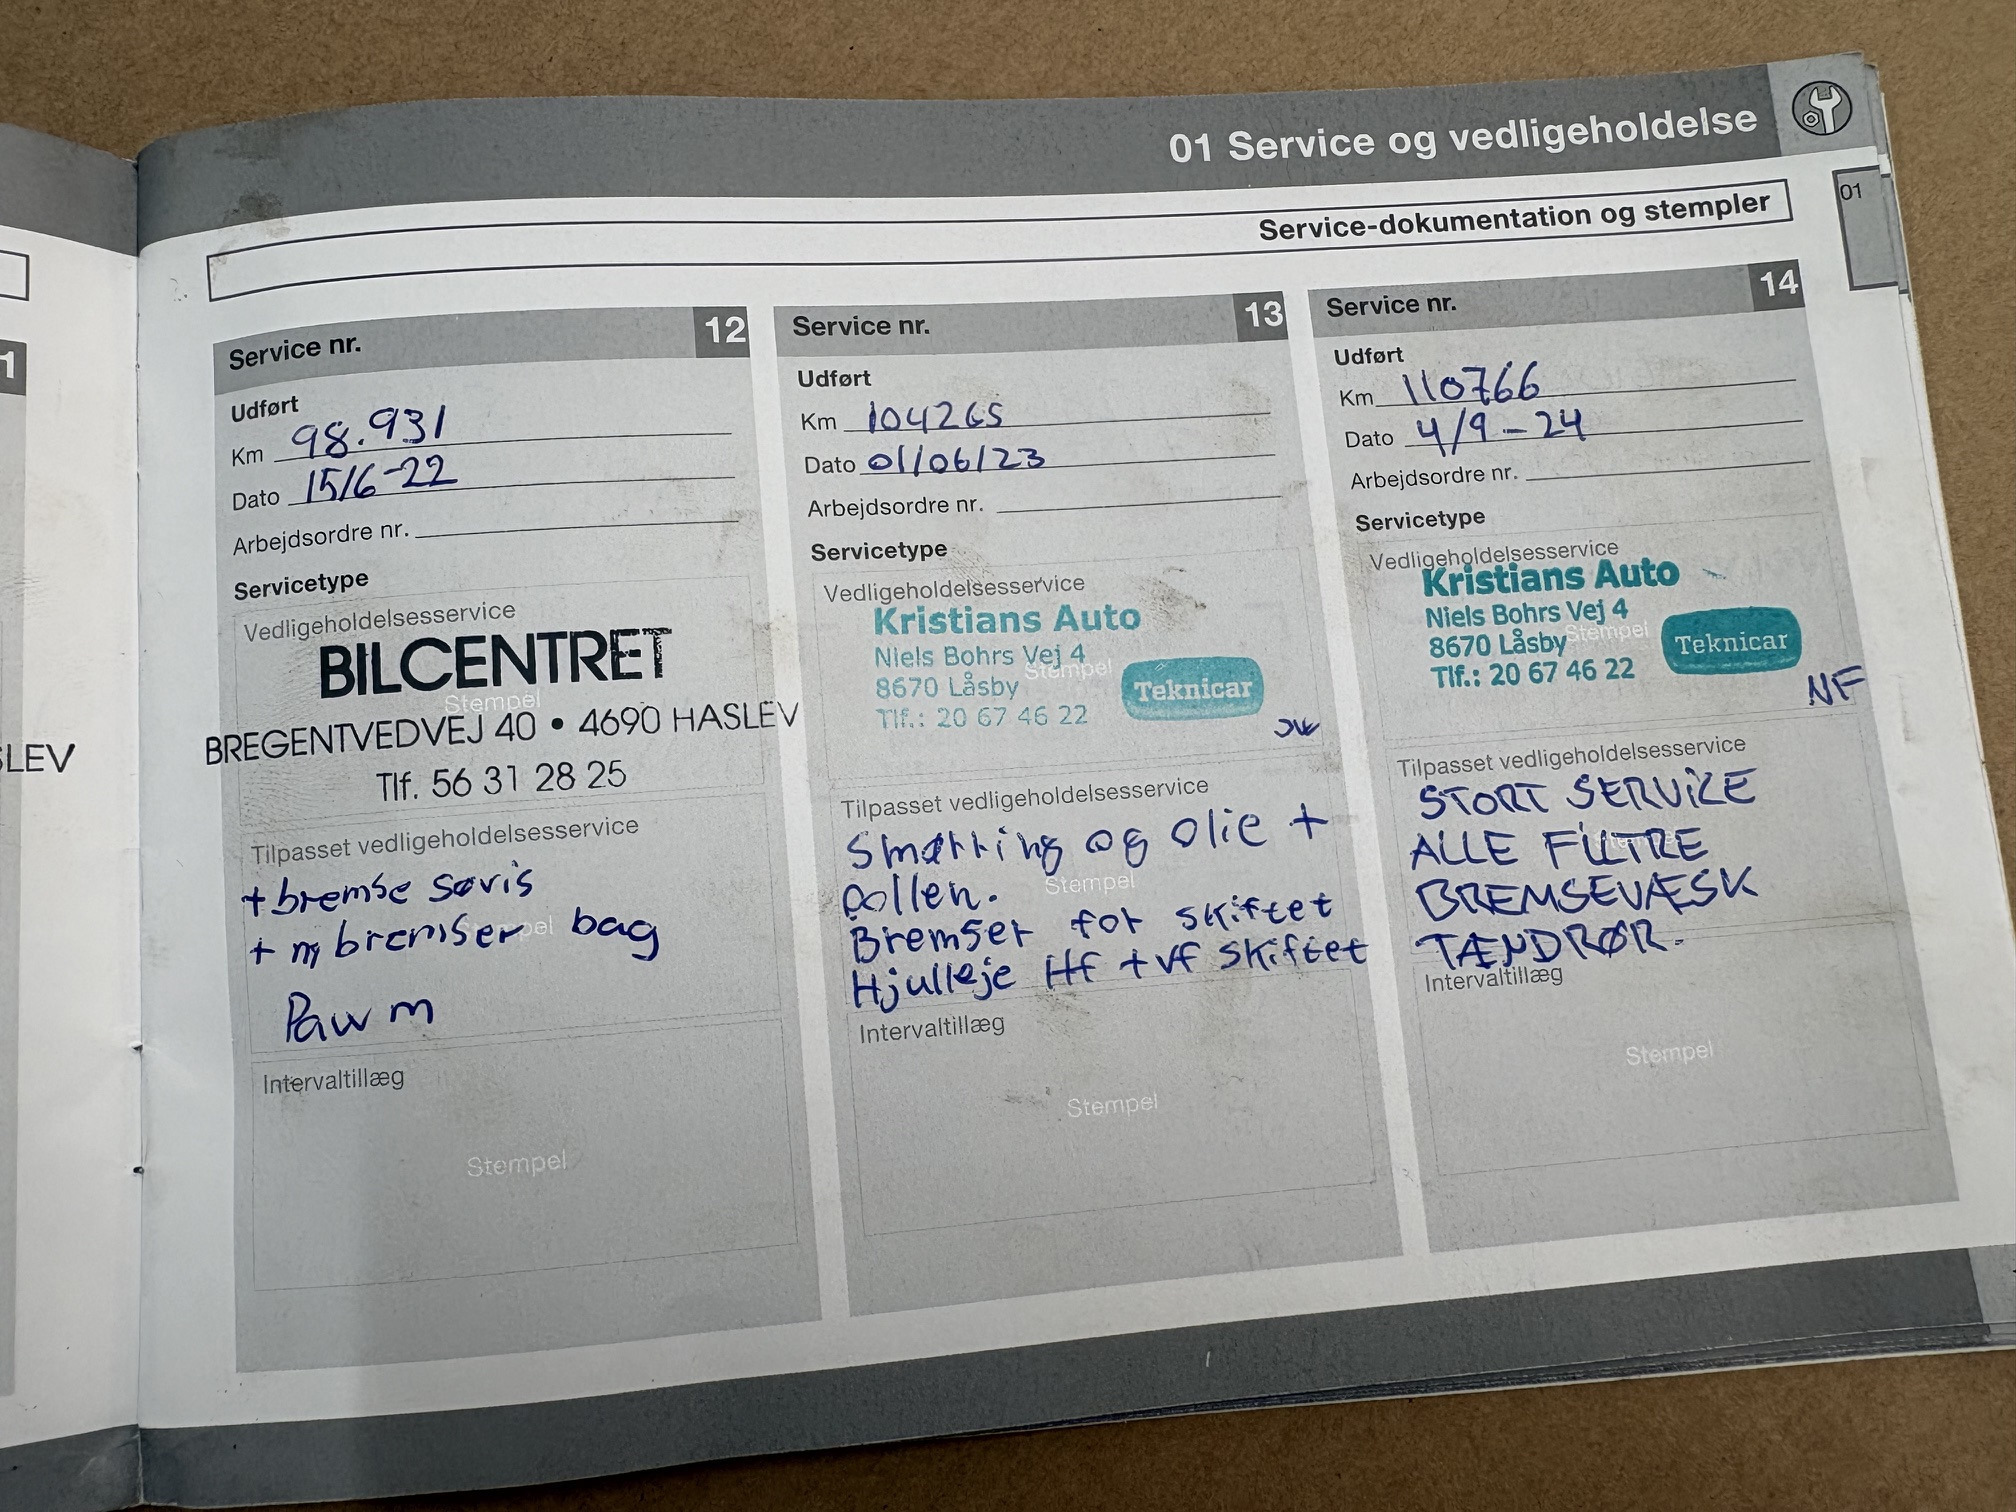 01 Service og vedligeholdelse
01
Service-dokumentation og stempler
1
SLEV
Service nr. 12
Udført
Km 98.931
Dato 15/6-22
Arbejdsordre nr.
Servicetype
Vedligeholdelsesservice
BILCENTRET
Stempel
BREGENTVEDVEJ 40 • 4690 HASLEV
Tlf. 56 31 28 25
Tilpasset vedligeholdelsesservice
+ bremse søvis
+ ny bremser bag
Stempel
Intervaltillæg
Stempel
Service nr. 13
Udført
Km 104265
Dato 01/06/23
Arbejdsordre nr.
Servicetype
Vedligeholdelsesservice
Kristians Auto
Niels Bohrs Vej 4
Stempel
8670 Låsby
Teknicar
Tlf.: 20 67 46 22
Tilpasset vedligeholdelsesservice
Smørring og olie +
pollen.
Stempel
Bremser for skiftet
Hjulleje Hf + vf skiftet
Intervaltillæg
Stempel
Service nr. 14
Udført
Km 110766
Dato 4/9-24
Arbejdsordre nr.
Servicetype
Vedligeholdelsesservice
Kristians Auto
Niels Bohrs Vej 4
8670 Låsby
Stempel
Teknicar
Tlf.: 20 67 46 22
NF
Tilpasset vedligeholdelsesservice
STORT SERVICE
ALLE FILTRE
Stempel
BREMSEVÆSK
TÆNDRØR.
Intervaltillæg
Stempel